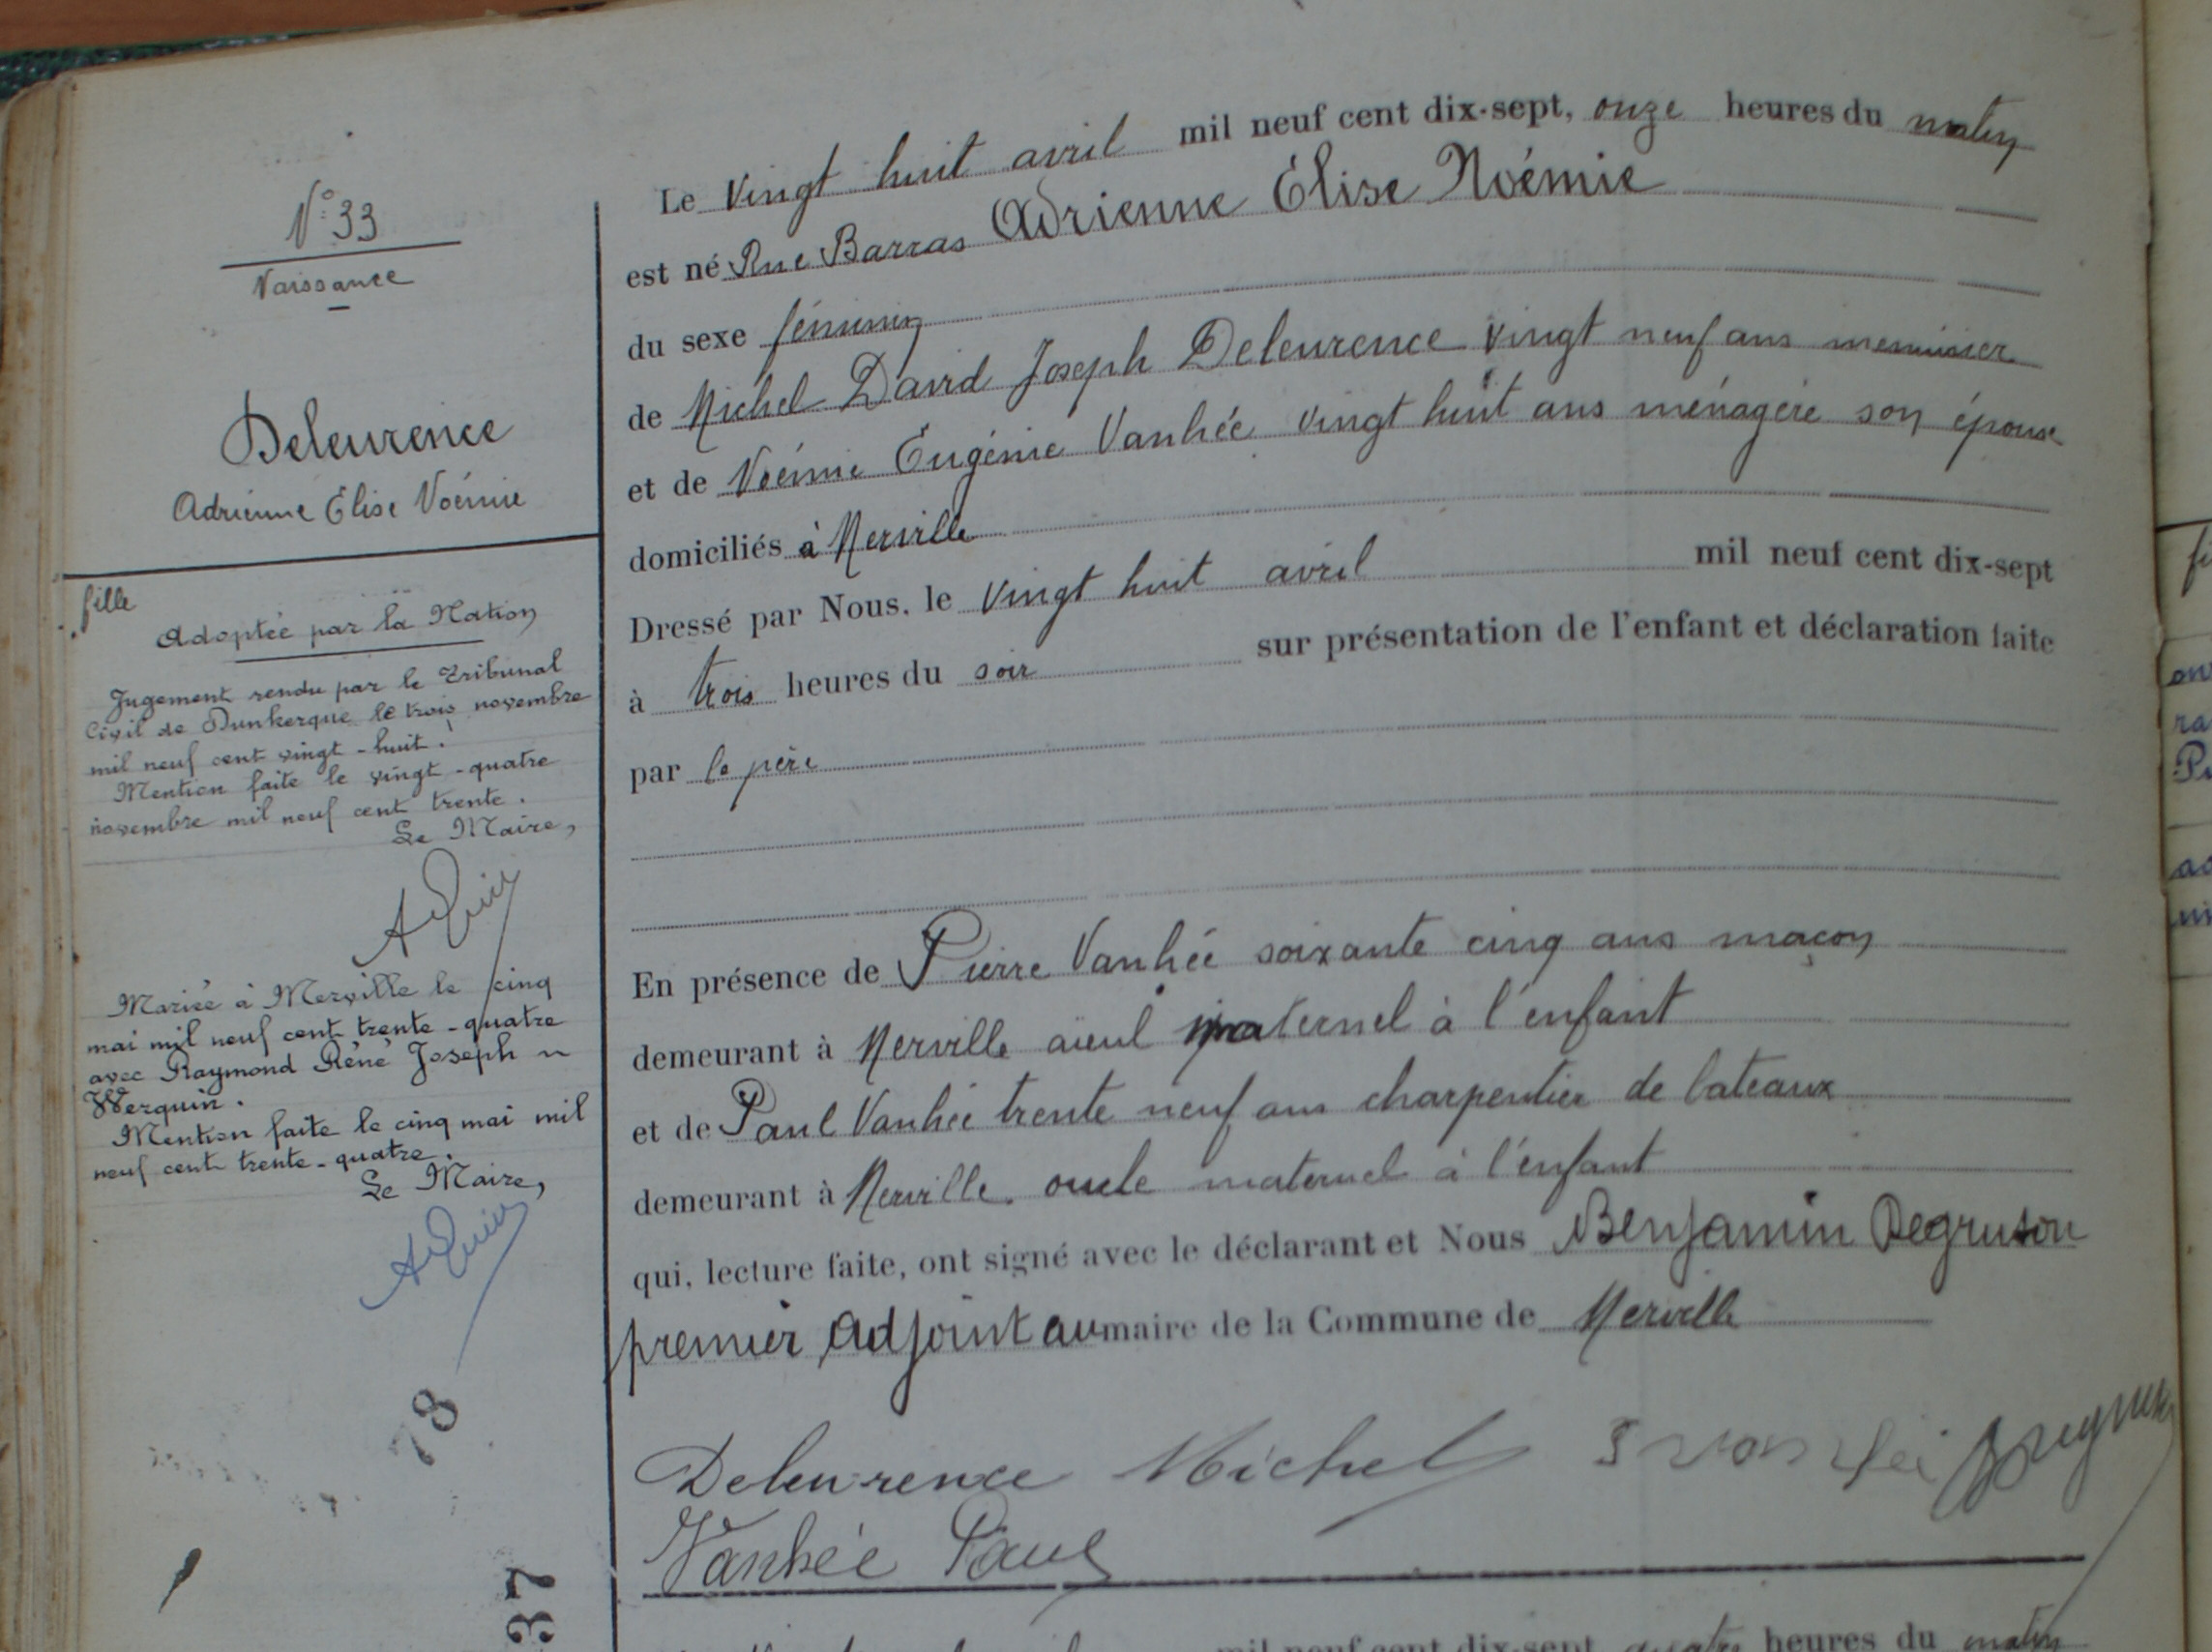 N° 33
Naissance
Deleurence
Adrienne Élise Noémie
fille
Adoptée par la Nation
Jugement rendu par le Tribunal
Civil de Dunkerque le trois novembre
mil neuf cent vingt-huit.
Mention faite le vingt-quatre
novembre mil neuf cent trente.
Le Maire,
Mariée à Merville le cinq
mai mil neuf cent trente-quatre
avec Raymond Réné Joseph
Werquin.
Mention faite le cinq mai mil
neuf cent trente-quatre.
Le Maire,
78
37
Le vingt huit avril mil neuf cent dix-sept, onze heures du matin
est né Rue Barras Adrienne Élise Noémie
du sexe féminin
de Michel David Joseph Deleurence vingt neuf ans menuisier
et de Noémie Eugénie Vanhée vingt huit ans ménagère son épouse
domiciliés à Merville
Dressé par Nous, le vingt huit avril mil neuf cent dix-sept
à trois heures du soir sur présentation de l'enfant et déclaration faite
par le père
En présence de Pierre Vanhée soixante cinq ans maçon
demeurant à Merville aïeul maternel à l'enfant
et de Paul Vanhée trente neuf ans charpentier de bateaux
demeurant à Merville. oncle maternel à l'enfant
qui, lecture faite, ont signé avec le déclarant et Nous Benjamin Degruson
premier adjoint au maire de la Commune de Merville
Deleurence Michel
Vanhée Paul
mil neuf cent dix-sept quatre heures du matin